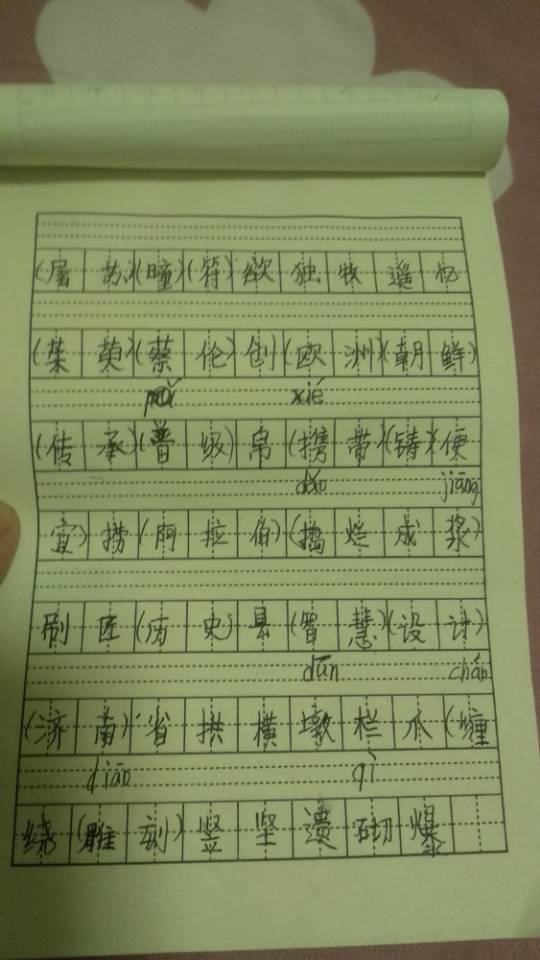 (屠苏)(瞳)(符)欲独牧遥忆
(茱萸)(蔡伦)创(欧洲)(朝鲜)
pǔ xié
(传承)(普级)帛(携带)(铸)(便
dǎo jiāng
宜)捞(阿拉伯)(捣烂成浆)
刷匠(历史)县(智慧)(设计)
dūn chán
(济南)省拱横墩栏爪(缠
diāo qì
绕(雕刻)竖坚遗砌爆